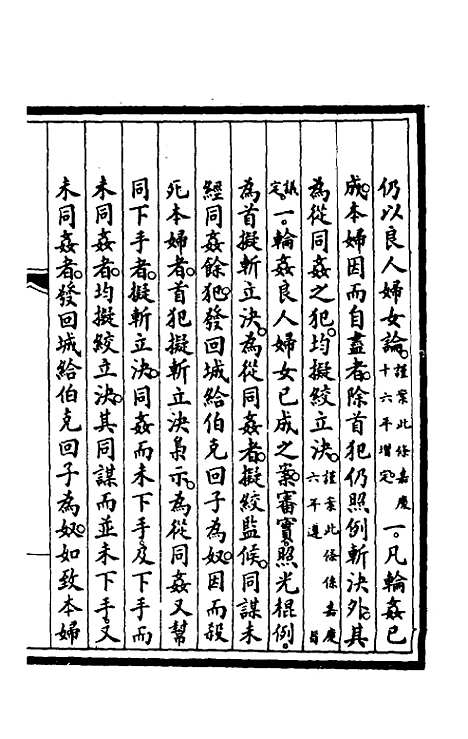 仍以良人婦女論。謹案此條嘉慶十六年增定。一。凡輪姦已
成。本婦因而自盡者。除首犯仍照例斬決外。其
為從同姦之犯。均擬絞立決。謹案此條係嘉慶六年遵旨
議定。一。輪姦良人婦女已成之案。審實。照光棍例。
為首擬斬立決。為從同姦者。擬絞監候。同謀未
經同姦餘犯。發回城給伯克回子為奴。因而殺
死本婦者。首犯擬斬立決梟示。為從同姦又幫
同下手者。擬斬立決。同姦而未下手。及下手而
未同姦者。均擬絞立決。其同謀而並未下手。又
未同姦者。發回城給伯克回子為奴。如致本婦